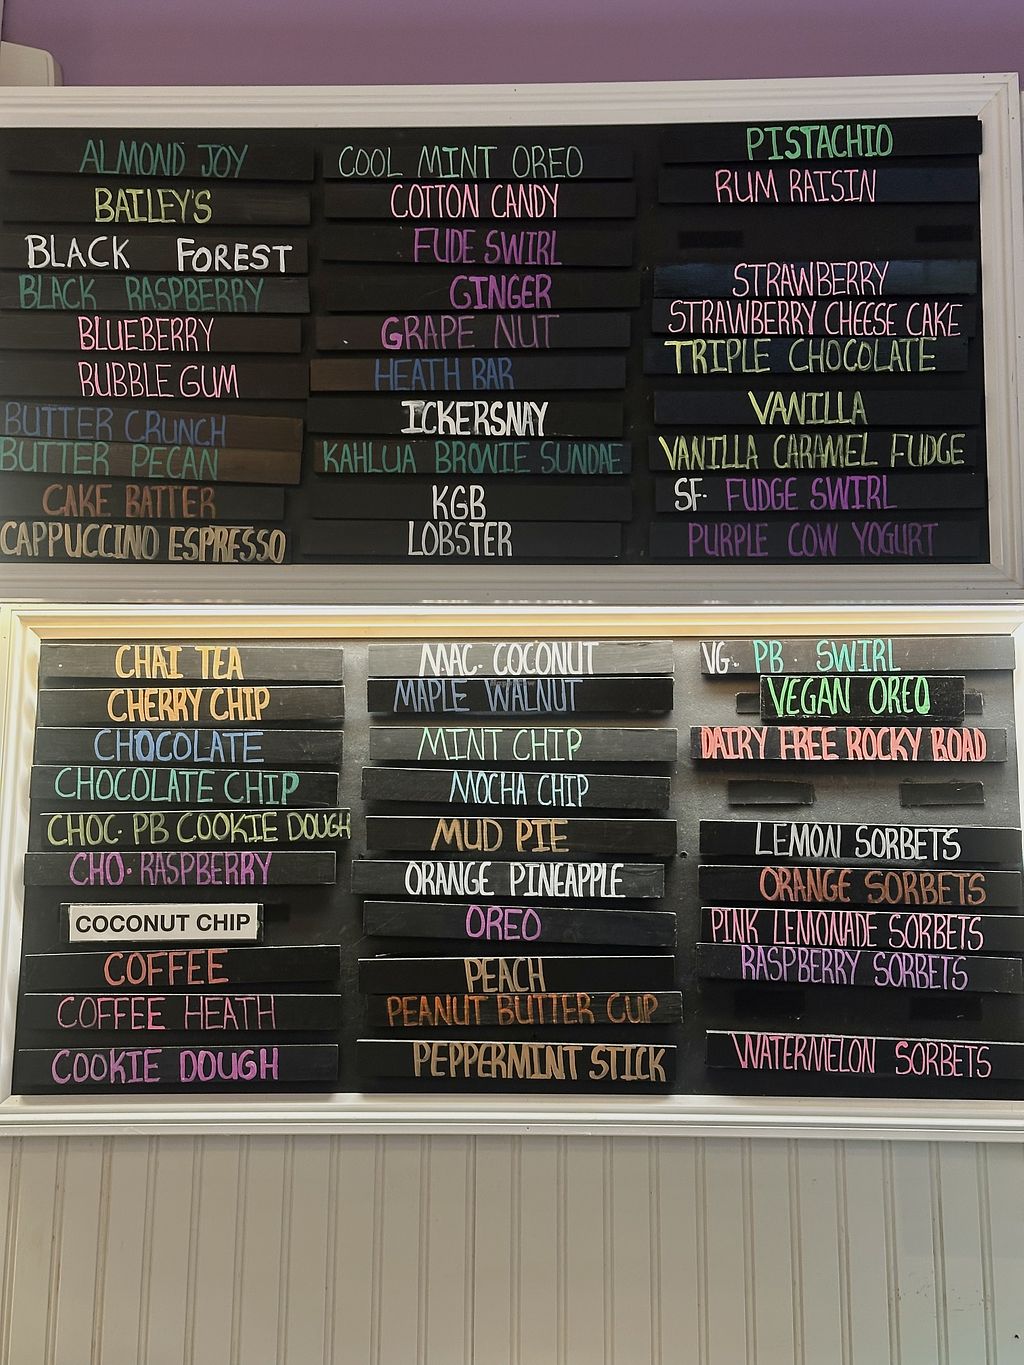 ALMOND JOY
BAILEY'S
BLACK FOREST
BLACK RASPBERRY
BLUEBERRY
BUBBLE GUM
BUTTER CRUNCH
BUTTER PECAN
CAKE BATTER
CAPPUCCINO ESPRESSO
COOL MINT OREO
COTTON CANDY
FUDE SWIRL
GINGER
GRAPE NUT
HEATH BAR
ICKERSNAY
KAHLUA BROWIE SUNDAE
KGB
LOBSTER
PISTACHIO
RUM RAISIN
STRAWBERRY
STRAWBERRY CHEESE CAKE
TRIPLE CHOCOLATE
VANILLA
VANILLA CARAMEL FUDGE
SF. FUDGE SWIRL
PURPLE COW YOGURT
CHAI TEA
CHERRY CHIP
CHOCOLATE
CHOCOLATE CHIP
CHOC. PB COOKIE DOUGH
CHO. RASPBERRY
COCONUT CHIP
COFFEE
COFFEE HEATH
COOKIE DOUGH
MAC. COCONUT
MAPLE WALNUT
MINT CHIP
MOCHA CHIP
MUD PIE
ORANGE PINEAPPLE
OREO
PEACH
PEANUT BUTTER CUP
PEPPERMINT STICK
VG. PB. SWIRL
VEGAN OREO
DAIRY FREE ROCKY ROAD
LEMON SORBETS
ORANGE SORBETS
PINK LEMONADE SORBETS
RASPBERRY SORBETS
WATERMELON SORBETS